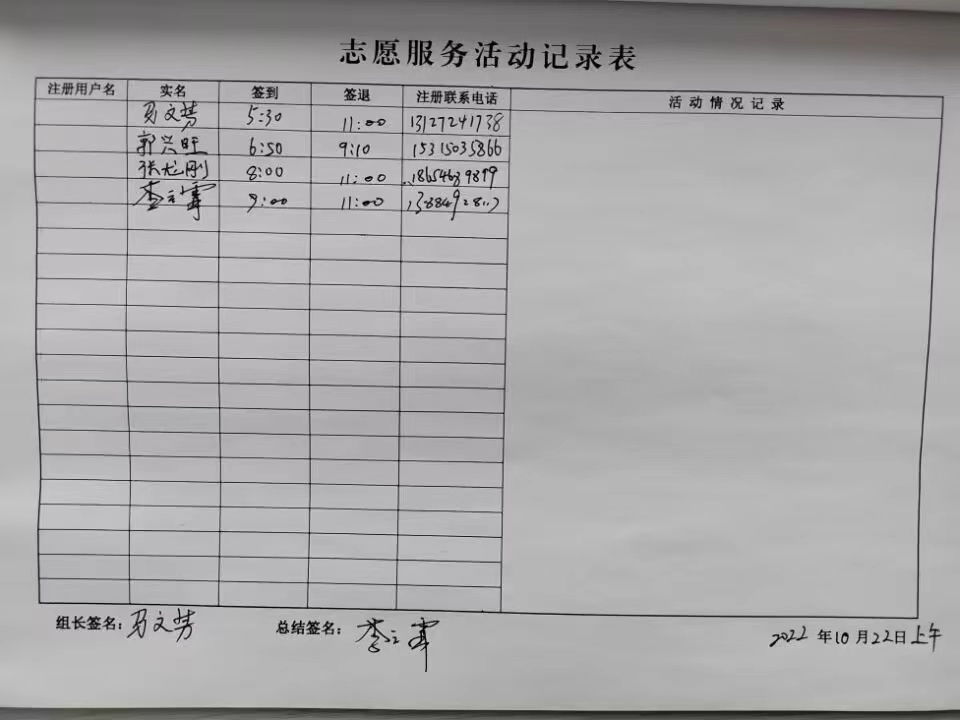 志愿服务活动记录表
注册用户名 实名 签到 签退 注册联系电话 活动情况记录
马文芳 5:30 11:00 13127241738
郭兴旺 6:50 9:10 15315035866
张龙刚 8:00 11:00
李立军 9:00 11:00
组长签名: 马文芳 总结签名: 李立军 2022年10月22日上午